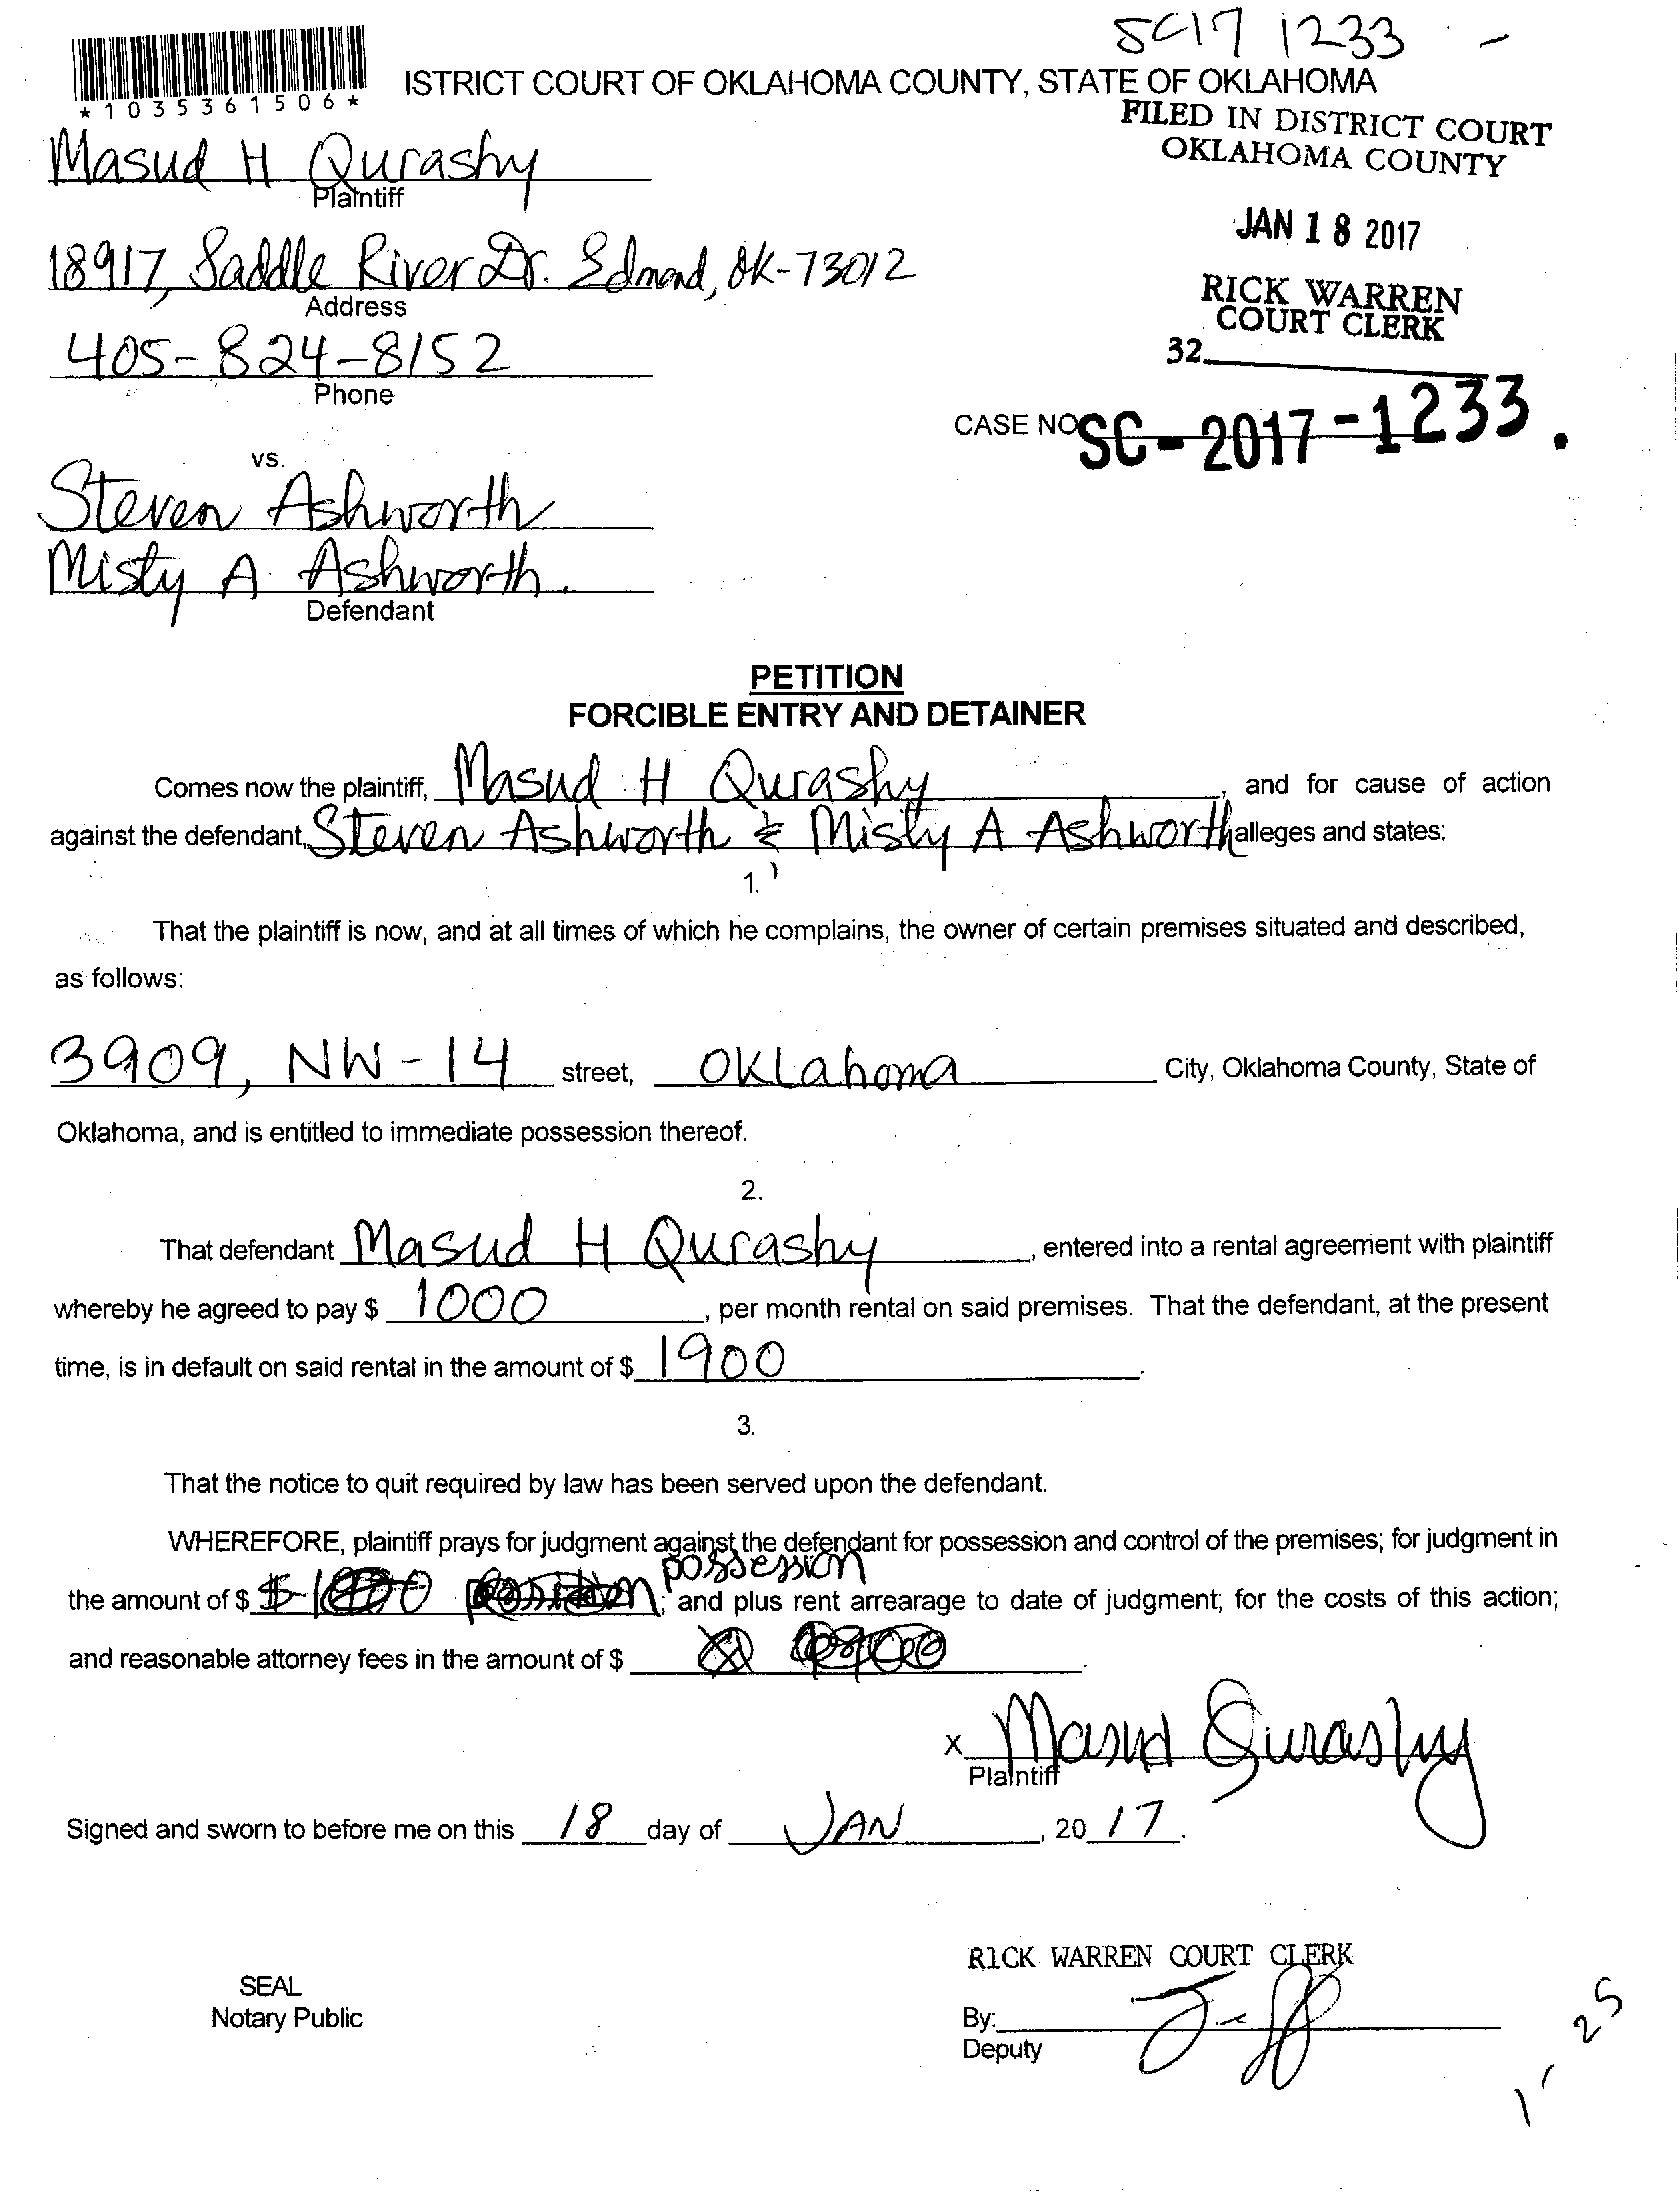 SC17 1233 -
*1035361506*
ISTRICT COURT OF OKLAHOMA COUNTY, STATE OF OKLAHOMA
FILED IN DISTRICT COURT
OKLAHOMA COUNTY
Masud H Qurashy
Plaintiff
JAN 18 2017
18917, Saddle River Dr. Edmond, OK-73012
Address
RICK WARREN
COURT CLERK
405-824-8152
Phone
32
CASE NO SC-2017-1233.
vs.
Steven Ashworth
Misty A Ashworth.
Defendant
PETITION
FORCIBLE ENTRY AND DETAINER
Comes now the plaintiff, Masud H Qurashy, and for cause of action
against the defendant, Steven Ashworth & Misty A Ashworth alleges and states:
1.
That the plaintiff is now, and at all times of which he complains, the owner of certain premises situated and described,
as follows:
3909, NW-14 street, Oklahoma City, Oklahoma County, State of
Oklahoma, and is entitled to immediate possession thereof.
2.
That defendant Masud H Qurashy, entered into a rental agreement with plaintiff
whereby he agreed to pay $ 1000, per month rental on said premises. That the defendant, at the present
time, is in default on said rental in the amount of $ 1900.
3.
That the notice to quit required by law has been served upon the defendant.
WHEREFORE, plaintiff prays for judgment against the defendant for possession and control of the premises; for judgment in
possession
the amount of $ ; and plus rent arrearage to date of judgment; for the costs of this action;
and reasonable attorney fees in the amount of $ .
x Masud Qurashy
Plaintiff
Signed and sworn to before me on this 18 day of JAN, 20 17.
RICK WARREN COURT CLERK
SEAL
Notary Public
By:
Deputy
25